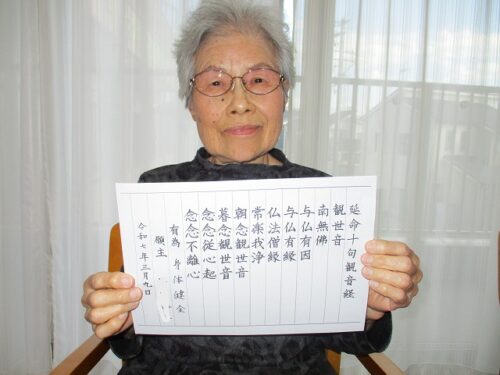 延命十句観音経
観世音
南無佛
与仏有因
与仏有縁
仏法僧縁
常楽我浄
朝念観世音
暮念観世音
念念従心起
念念不離心
有為 身体健全
願主
令和七年三月九日